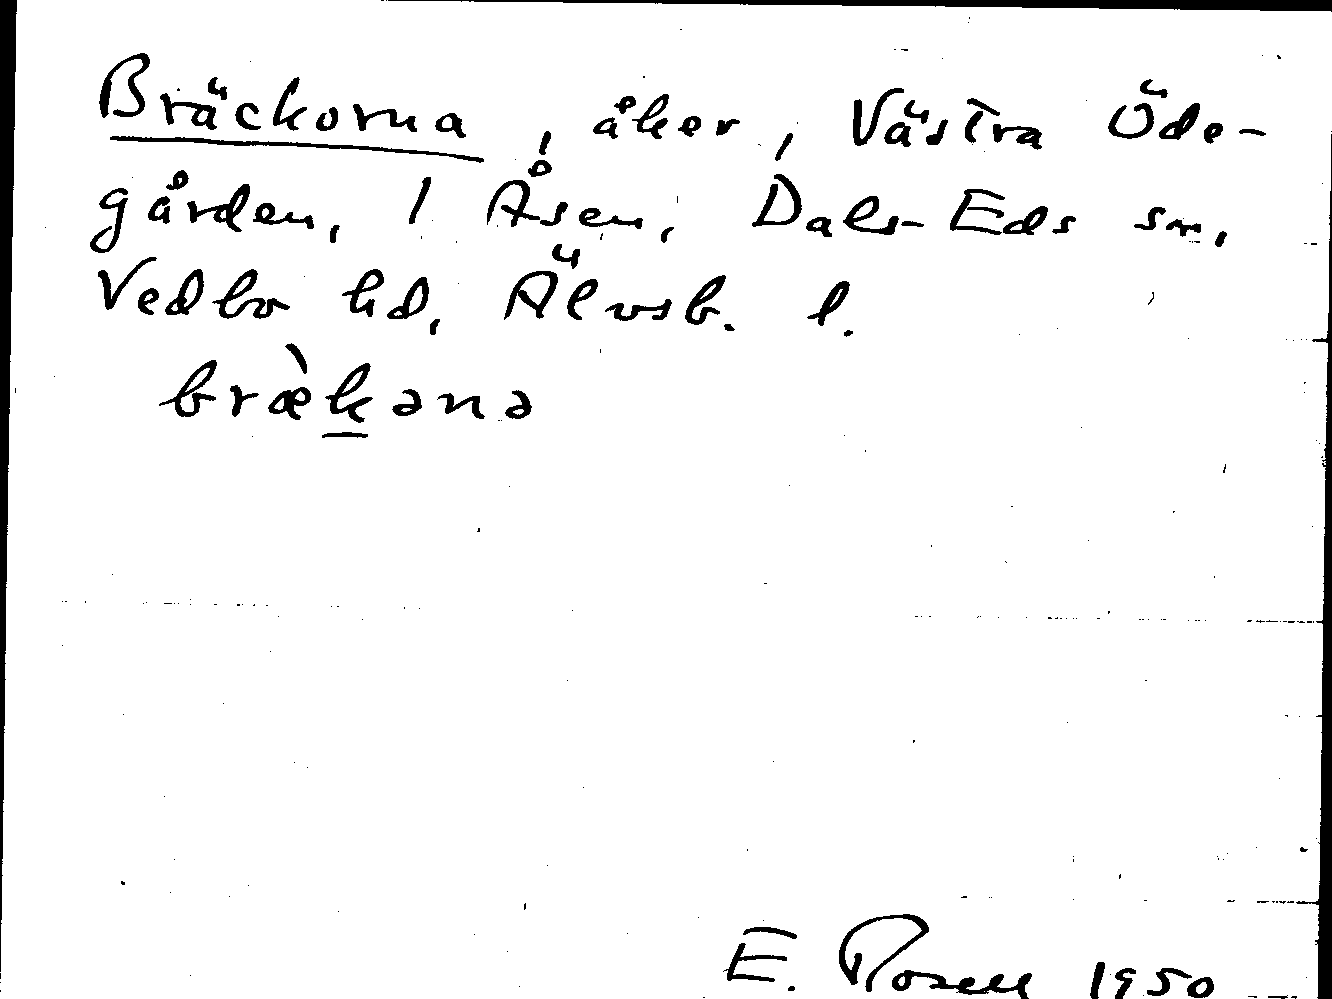 Bräckorna, åker, Västra Öde-
gården, 1 Åsen, Dals-Eds sn,
Vedbo hd, Älvsb. l.
bræ̀kənə
E. Rosell 1950